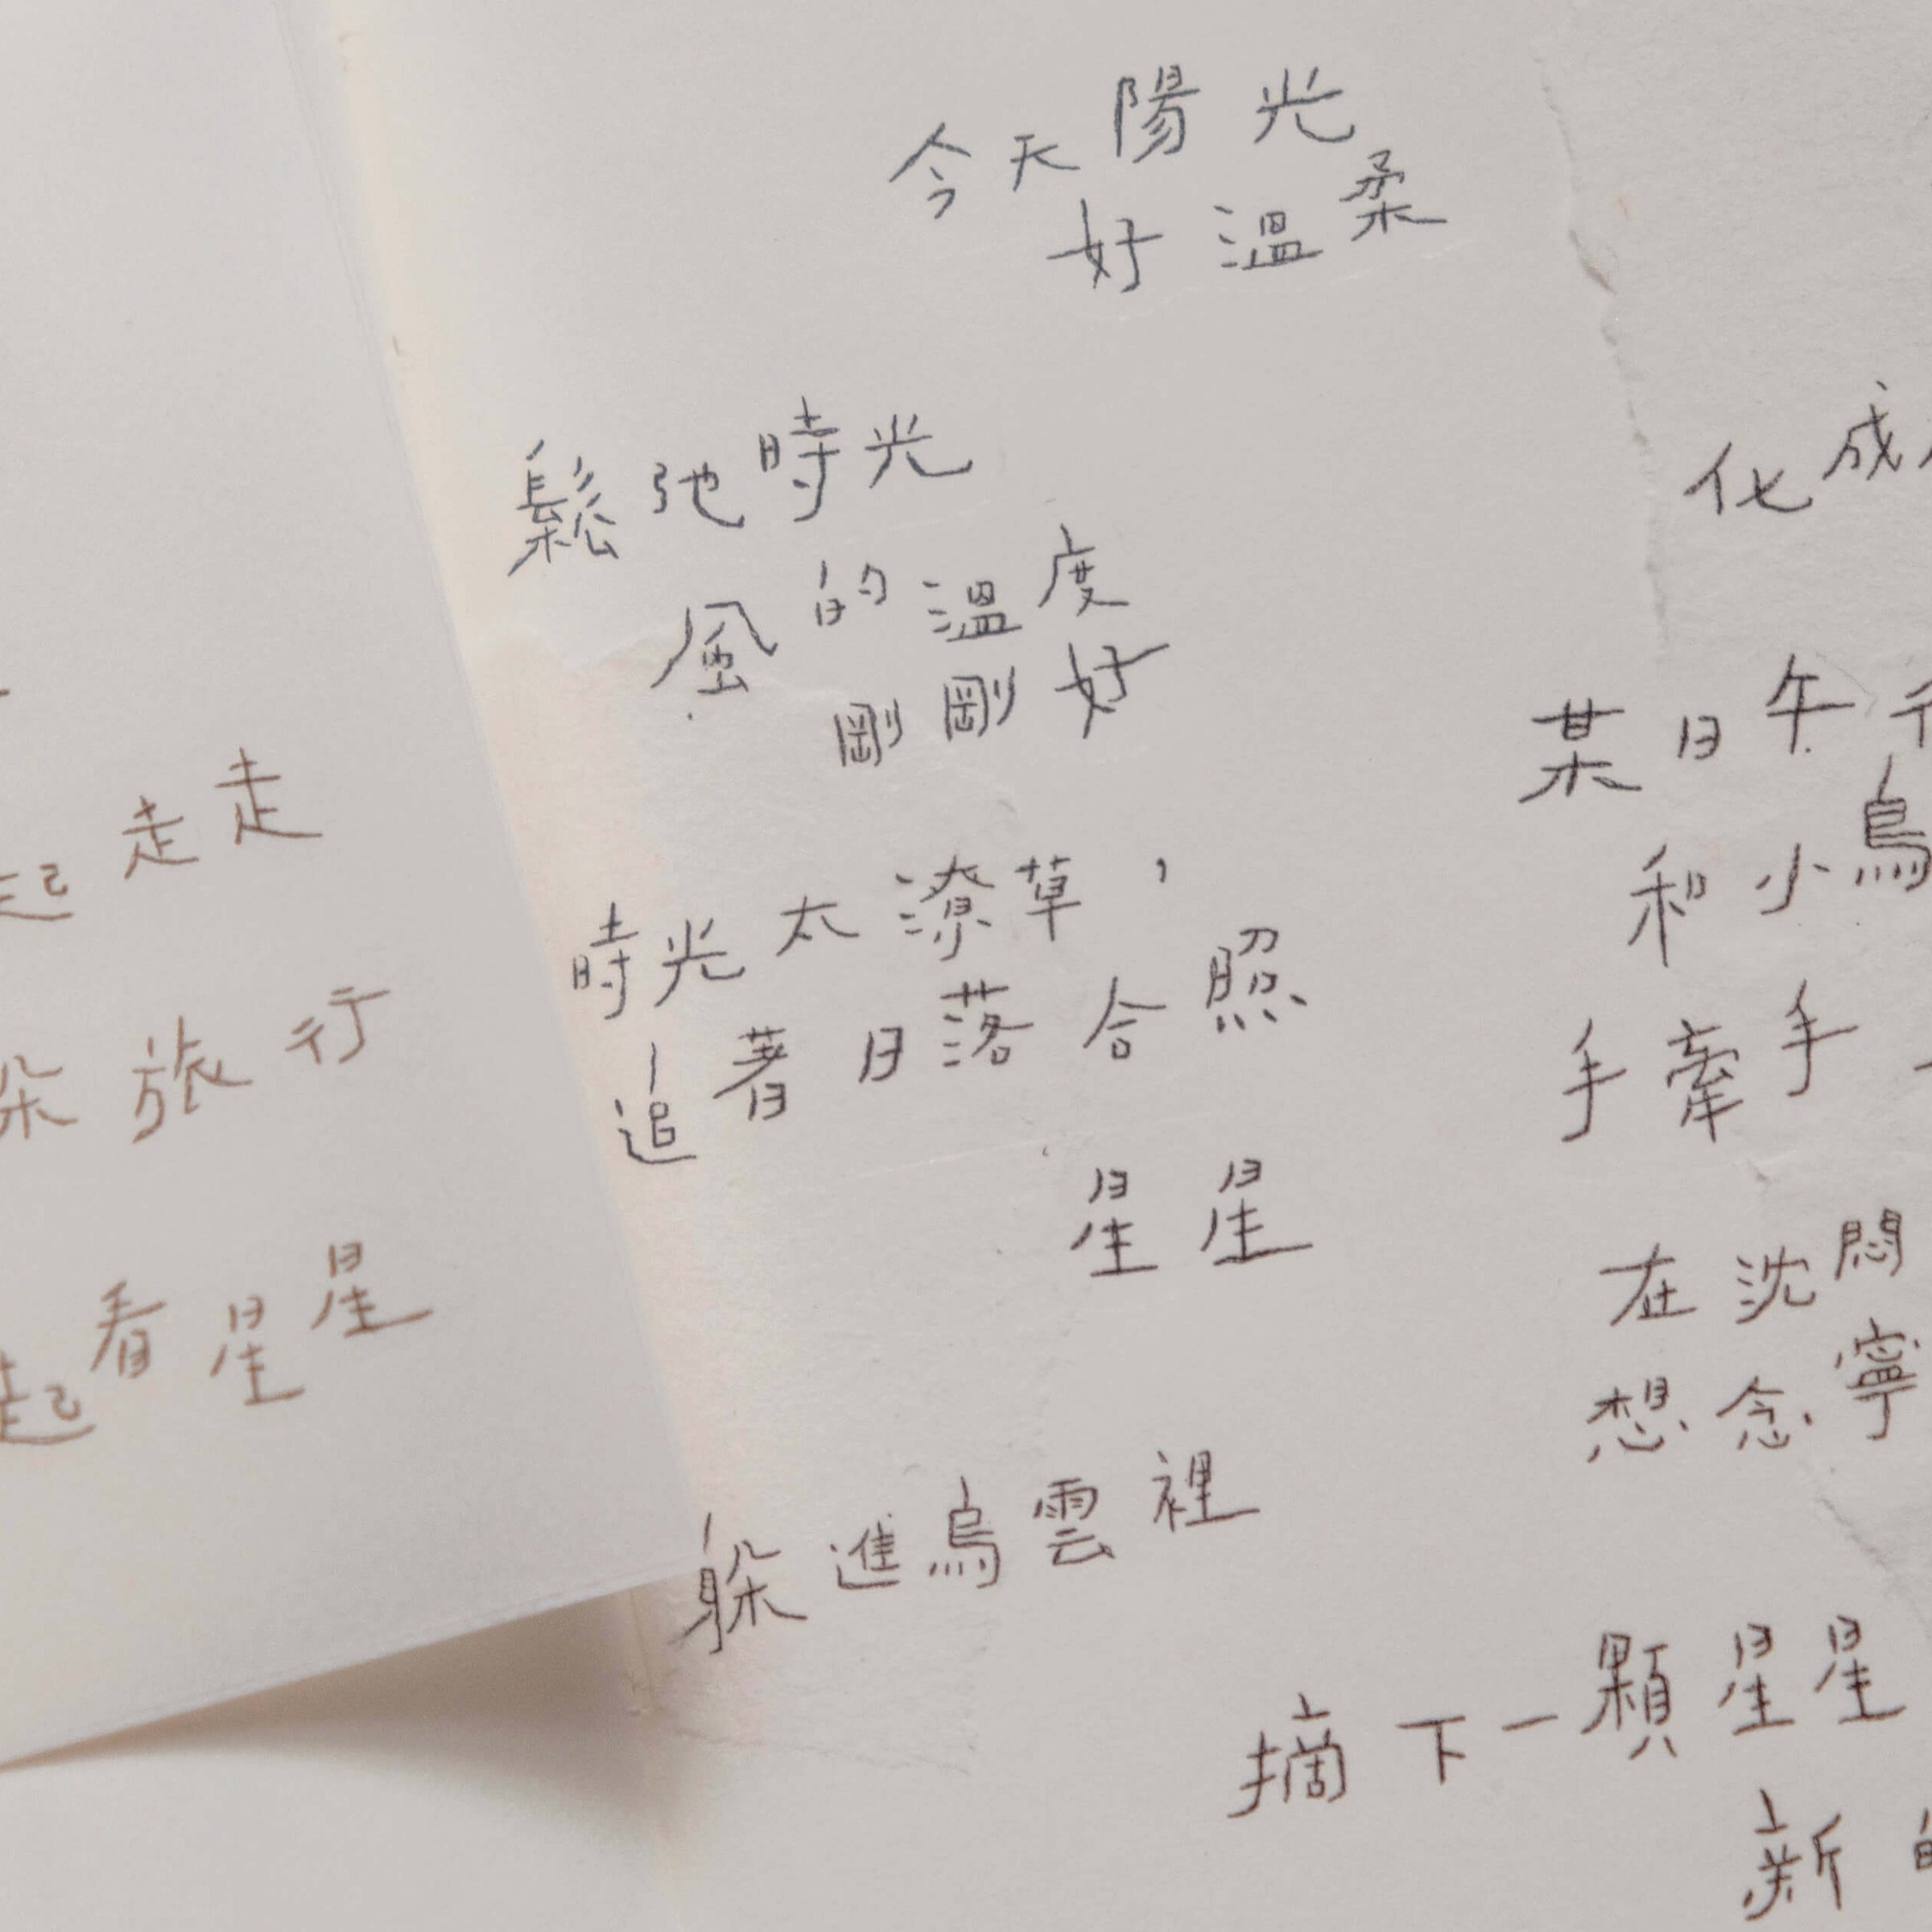 今天陽光
好溫柔
鬆弛時光
風的溫度
剛剛好
時光太潦草，
追著日落合照
星星
躲進烏雲裡
摘下一顆星星
新的
起走走
朵旅行
起看星星
化成
某日午
和小鳥
手牽手
在沈悶
想念寧